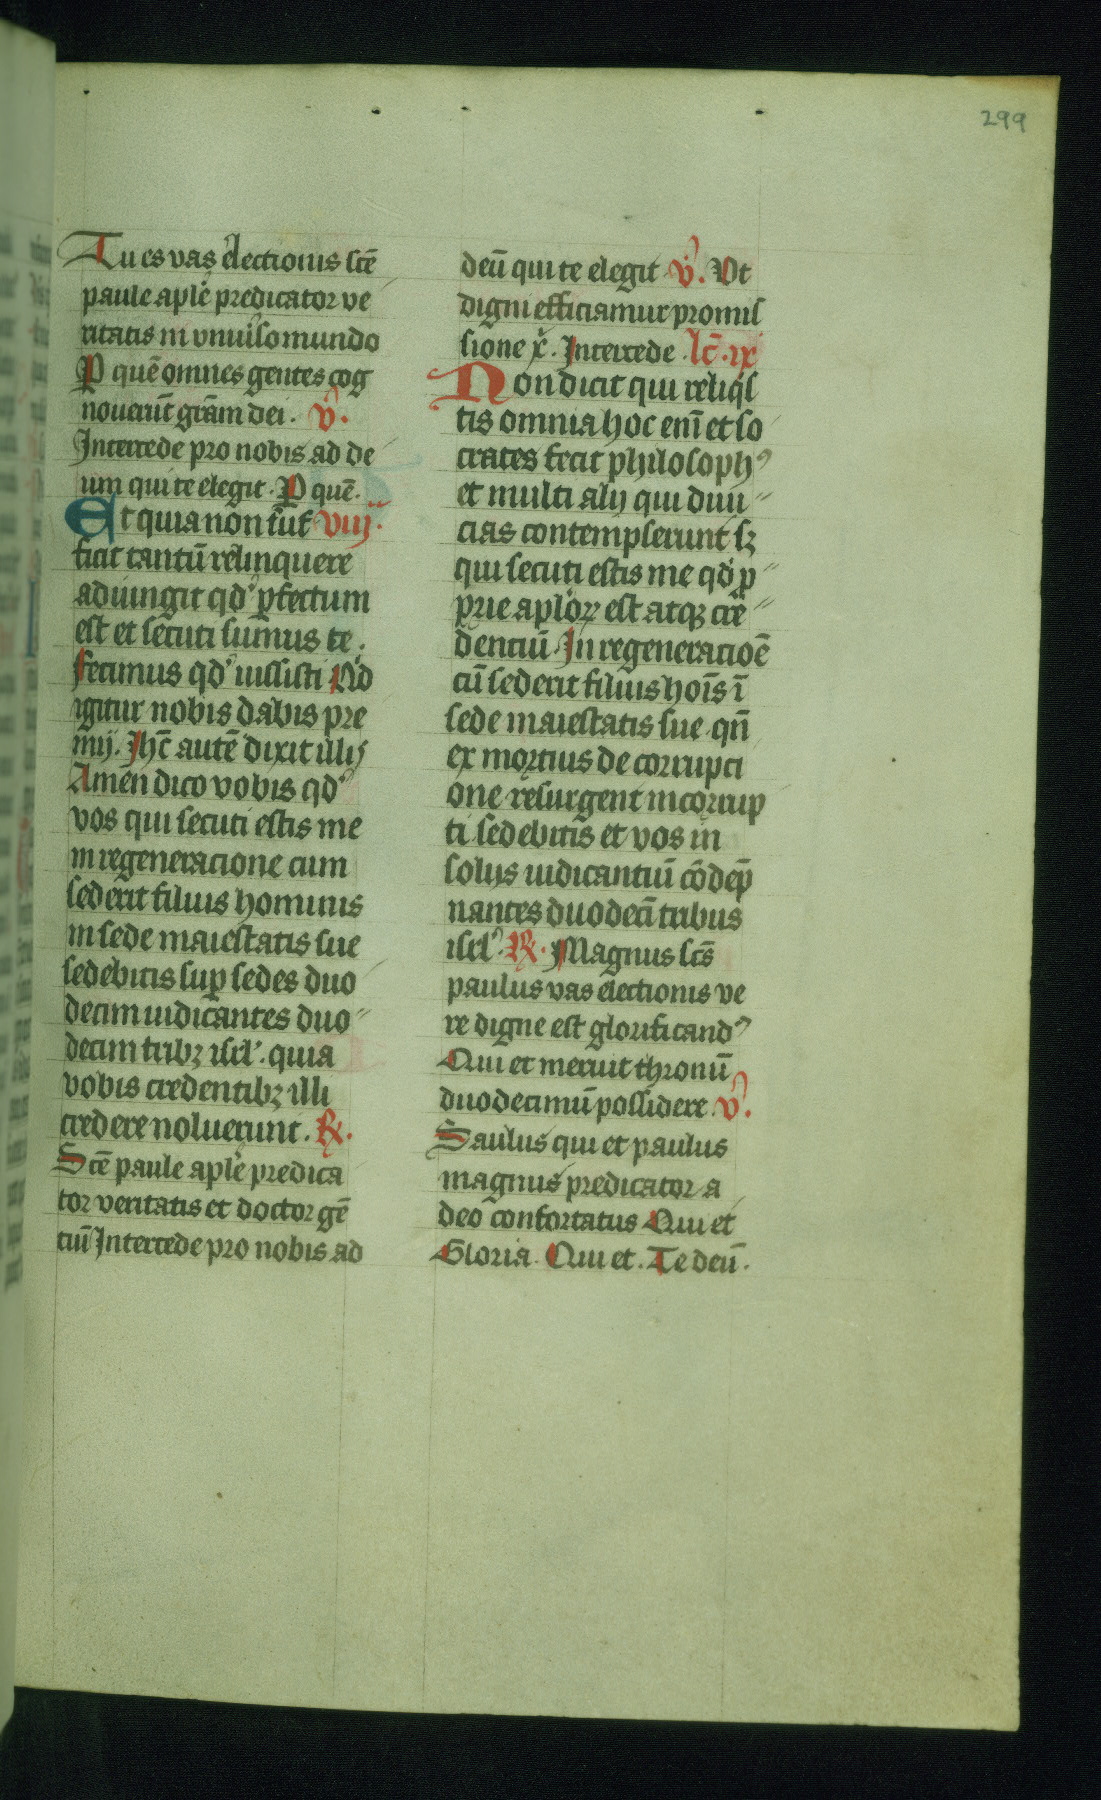 299
Tu es vas electionis scē
paule aplē predicator ve
ritatis in vniuˀso mundo
P quē omnes gentes cog
nouerūt grām dei. v̊.
Intercede pro nobis ad de
um qui te elegit. P quē.
Et quia non suf viij.
ficit tantū relinquere
adiungit qdˀ ꝑfectum
est et secuti sumus te.
fecimus qdˀ iussisti Qͥd
igitur nobis dabis pre
mij. Jhc̄ autē dixit illis
Amen dico vobis qdˀ
vos qui secuti estis me
in regeneracione cum
sederit filius hominis
in sede maiestatis sue
sedebitis suꝑ sedes duo
decim iudicantes duo
decim tribꝫ isrlˀ. quia
vobis credentibꝫ illi
credere noluerunt. ℟.
Scē paule aplē predica
tor veritatis et doctor gē
ciū Intercede pro nobis ad
deū qui te elegit v̊. Vt
digni efficiamur promis
sione xͥ. Intercede lc̄. ix
Non dicit qui reliqͥs
tis omnia hoc enī et so
crates fecit philosophꝰ
et multi alij qui diui
cias contempserunt sꝫ
qui secuti estis me qdˀ ꝓ
prie aploꝝ est atqꝫ cre
dentiū In regeneratiōe
cū sederit filius hoīs ī
sede maiestatis sue qn̄
ex mortuis de corrupti
one resurgent incorrup
ti sedebitis et vos in
solijs iudicantiū cōdēp
nantes duodecī tribus
isrlˀ. ℟. Magnus scs̄
paulus vas electionis ve
re digne est glorificandꝰ
Qui et meruit thronū
duodecimū possidere v̊.
Saulus qui et paulus
magnus predicator a
deo confortatus Qui et
Gloria. Qui et. Te deū.